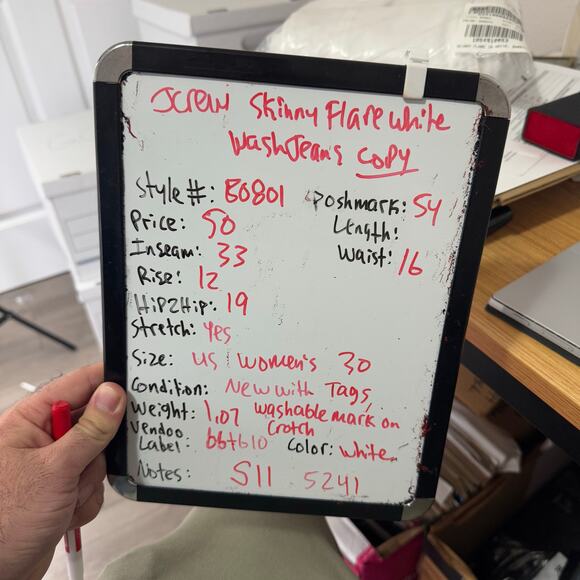 JCrew Skinny Flare white
Wash Jeans copy
Style #: E0801
Poshmark: 54
Price: 50
Length:
Inseam: 33
Waist: 16
Rise: 12
HiP2Hip: 19
Stretch: yes
Size: US Women's 30
Condition: New with Tags,
washable mark on
Crotch
Weight: 1.07
Vendoo
Label: bbtb10
Color: white
Notes: S11 5241